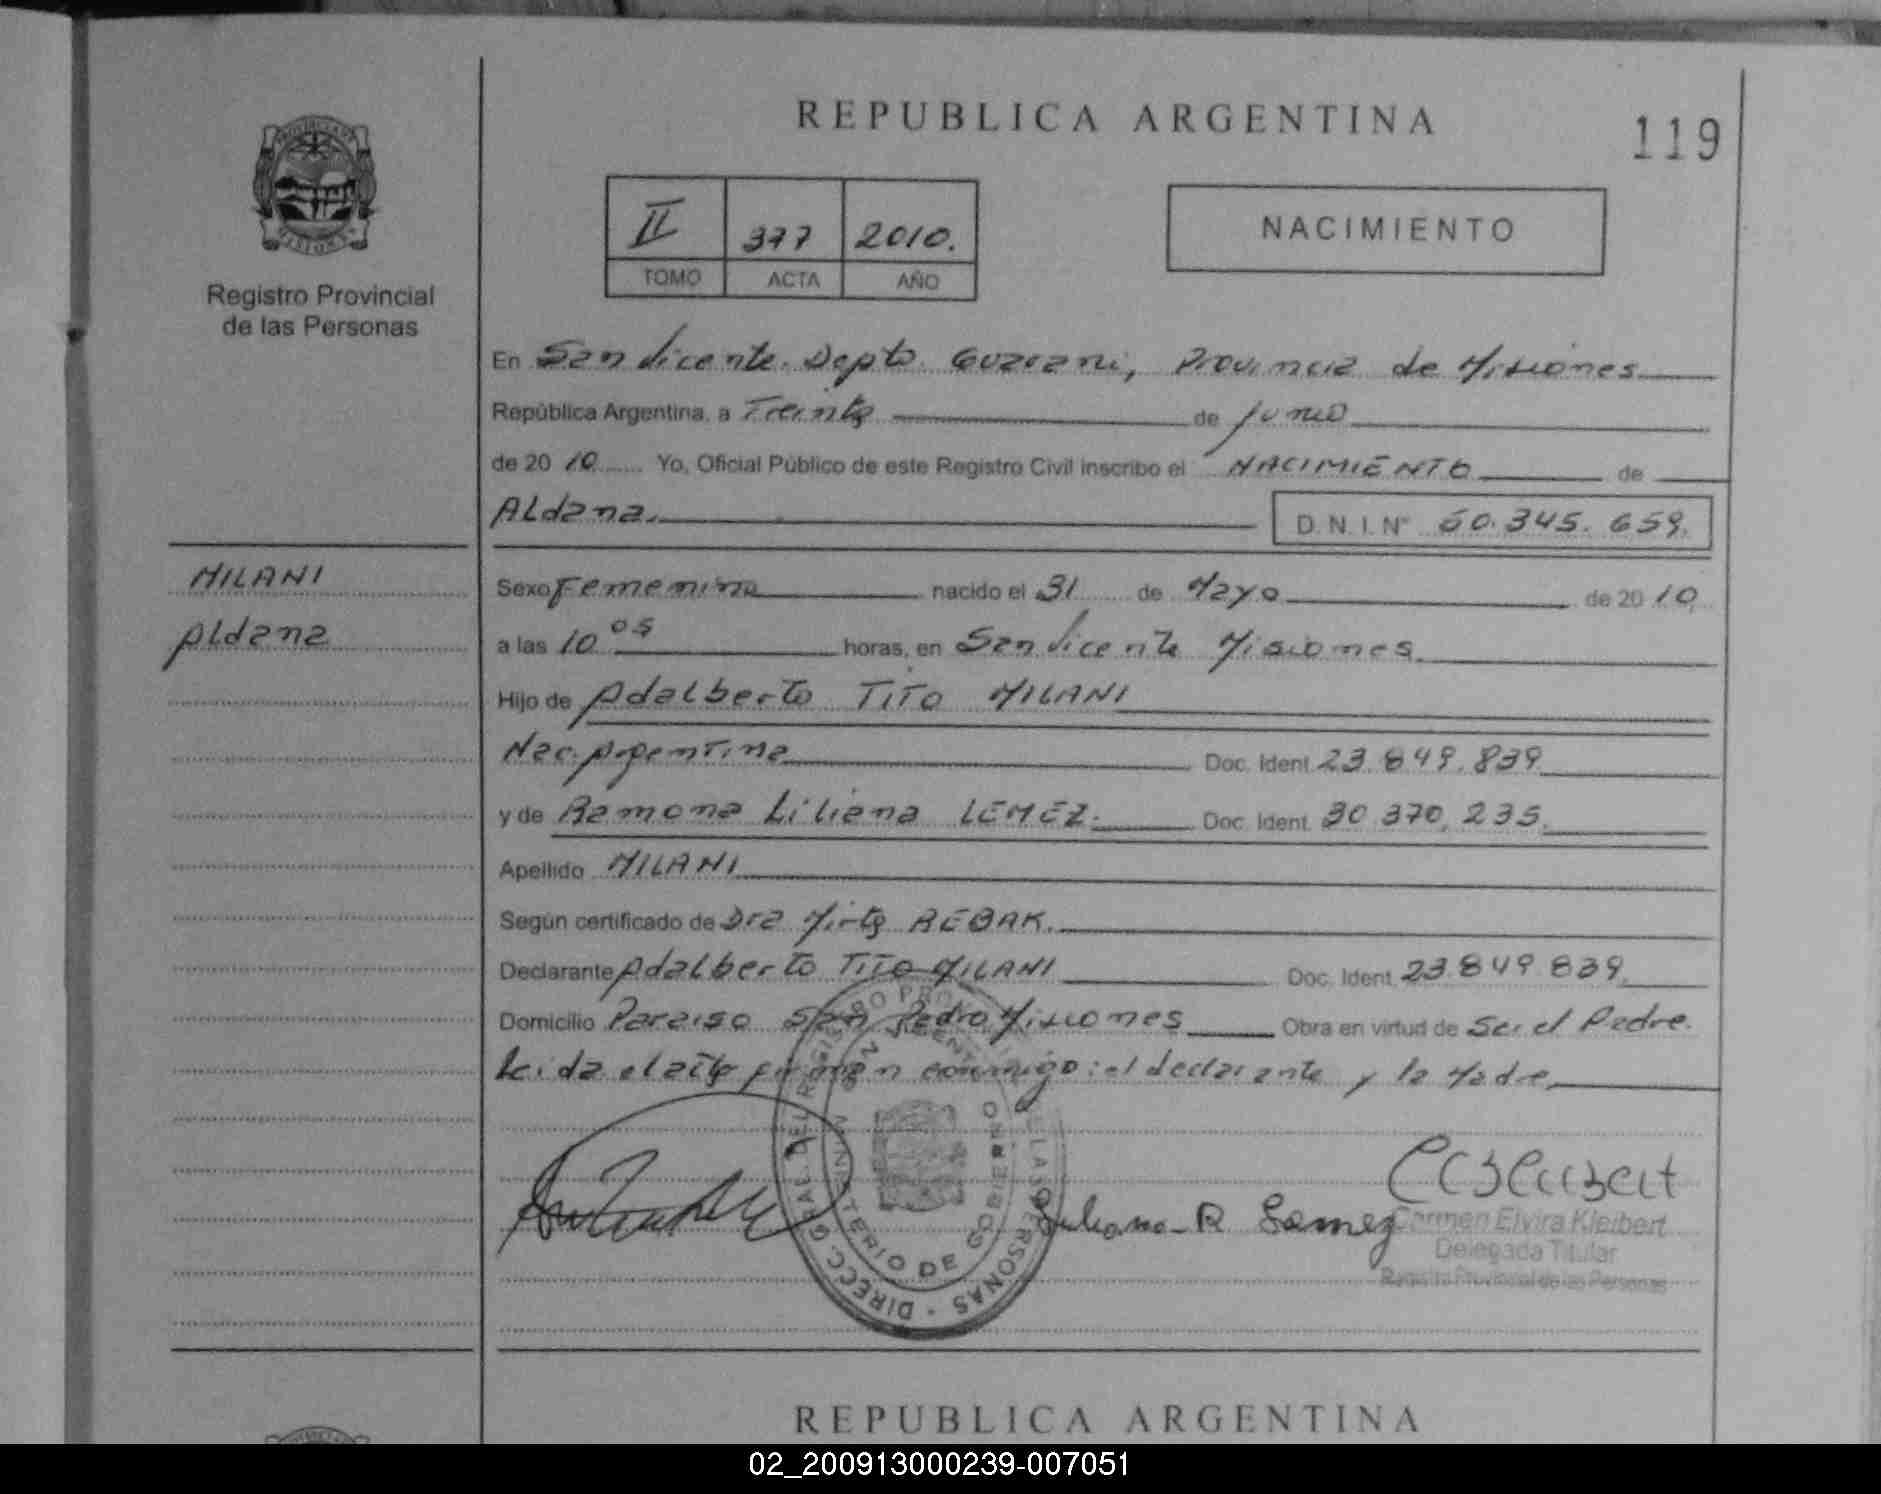 REPUBLICA ARGENTINA
119
PROVINCIA DE
MISIONES
Registro Provincial
de las Personas
II 377 2010.
TOMO ACTA AÑO
NACIMIENTO
En San Vicente. Depto. Guarani, Provincia de Misiones
República Argentina, a Treinta de junio
de 2010 Yo, Oficial Público de este Registro Civil inscribo el NACIMIENTO de
Aldana.
D.N.I. Nº 50.345.659.
MILANI
Aldana
Sexo Femenino nacido el 31 de Mayo de 2010,
a las 10 05 horas, en San Vicente Misiones
Hijo de Adalberto TITO MILANI
Nac. Argentina Doc. Ident. 23.849.839
y de Ramona Liliana LEMEZ. Doc. Ident. 30.370.235.
Apellido MILANI
Según certificado de Dra Mirta REBAK.
Declarante Adalberto TITO MILANI Doc. Ident. 23.849.839.
Domicilio Paraiso San Pedro Misiones Obra en virtud de Ser el Padre.
Leida el acta firman conmigo: el declarante y la Madre,
DIRECC. GRAL. DEL REGISTRO PROVINCIAL DE LAS PERSONAS
SAN VICENTE
MINISTERIO DE GOBIERNO
Carmen Elvira Kleibert
Delegada Titular
Registro Provincial de las Personas
REPUBLICA ARGENTINA
02_200913000239-007051